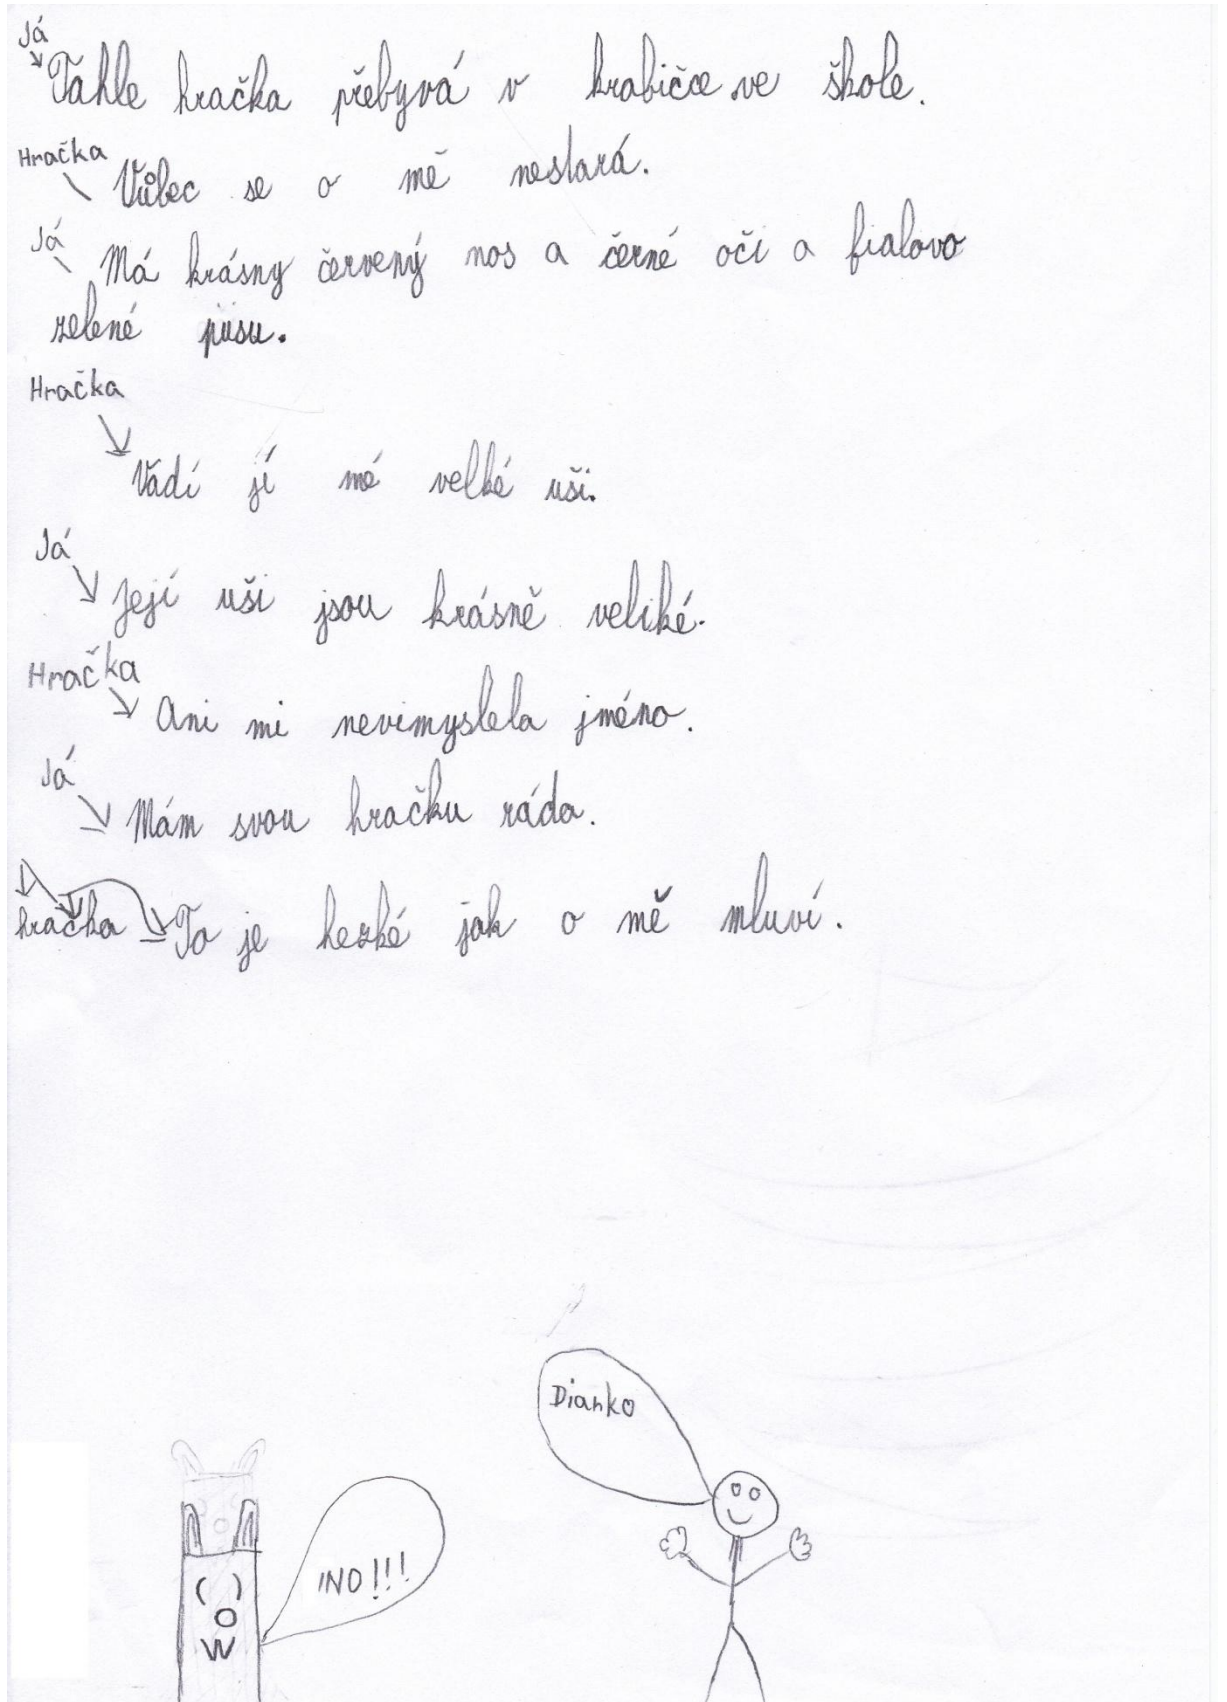 Já
Táhle hračka přebyvá v krabičce ve škole.
Hračka
Vůbec se o mě nestará.
Já
Má krásny červený nos a černé oči a fialovo
zelené pusu.
Hračka
Vadí jí mé velké uši.
Já
Její uši jsou krásně veliké.
Hračka
Ani mi nevimyslela jméno.
Já
Mám svou hračku ráda.
hračka To je hezké jak o mě mluví.
Dianko
INO!!!